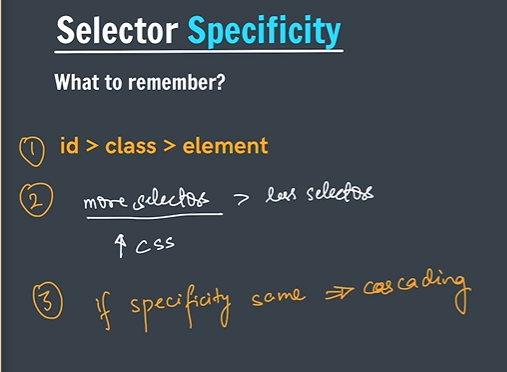 Selector Specificity
What to remember?
1 id > class > element
2 more selectos > less selectos
↑ css
3 if specificity same ⇒ cascading